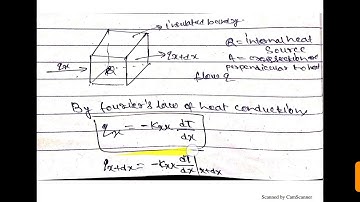 insulated boundry
Q = internal heat
Source
qx
Q
qx+dx
A = crosssection area
perpendicular to heat
flow q
By Fourier's law of heat conduction
qx = -Kxx dT/dx
qx+dx = -Kxx dT/dx |x+dx
Scanned by CamScanner